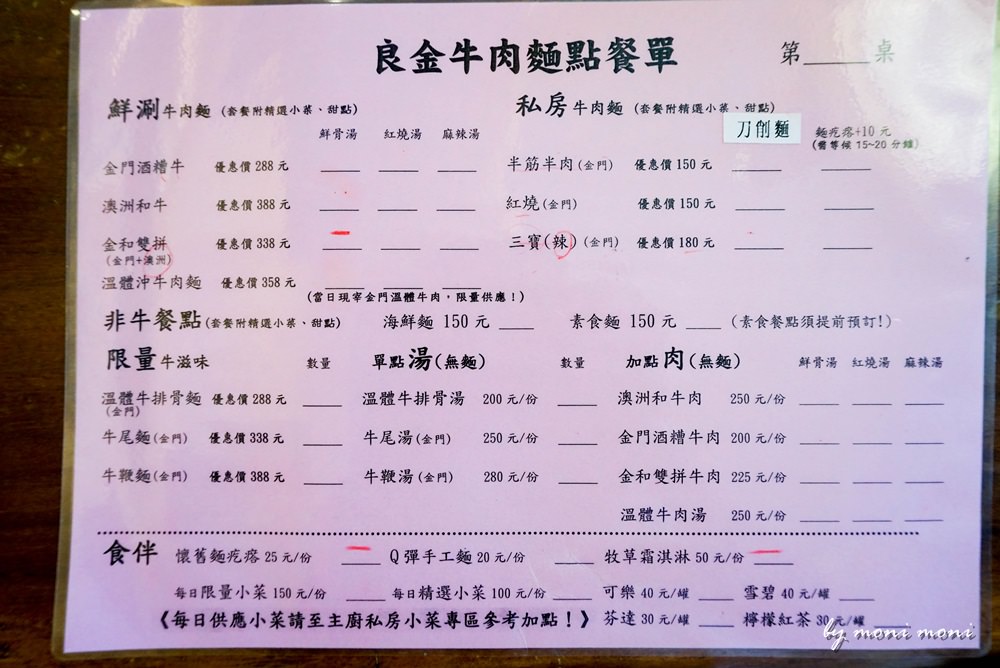 良金牛肉麵點餐單 第______桌
鮮涮牛肉麵 (套餐附精選小菜、甜點)
鮮骨湯 紅燒湯 麻辣湯
金門酒糟牛 優惠價 288 元
澳洲和牛 優惠價 388 元
金和雙拼 優惠價 338 元
(金門+澳洲)
溫體沖牛肉麵 優惠價 358 元
(當日現宰金門溫體牛肉，限量供應！)
私房牛肉麵 (套餐附精選小菜、甜點)
刀削麵 麵疙瘩+10 元
(需等候 15~20 分鐘)
半筋半肉(金門) 優惠價 150 元
紅燒(金門) 優惠價 150 元
三寶(辣)(金門) 優惠價 180 元
非牛餐點(套餐附精選小菜、甜點) 海鮮麵 150 元 ____ 素食麵 150 元 ____ (素食餐點須提前預訂!)
限量牛滋味 數量
溫體牛排骨麵 優惠價 288 元
(金門)
牛尾麵(金門) 優惠價 338 元
牛鞭麵(金門) 優惠價 388 元
單點湯(無麵) 數量
溫體牛排骨湯 200 元/份
牛尾湯(金門) 250 元/份
牛鞭湯(金門) 280 元/份
加點肉(無麵) 鮮骨湯 紅燒湯 麻辣湯
澳洲和牛肉 250 元/份
金門酒糟牛肉 200 元/份
金和雙拼牛肉 225 元/份
溫體牛肉湯 250 元/份
食伴 懷舊麵疙瘩 25 元/份 ____ Q彈手工麵 20 元/份 ____ 牧草霜淇淋 50 元/份 ____
每日限量小菜 150 元/份 ____ 每日精選小菜 100 元/份 ____ 可樂 40 元/罐 ____ 雪碧 40 元/罐 ____
《每日供應小菜請至主廚私房小菜專區參考加點！》 芬達 30 元/罐 ____ 檸檬紅茶 30 元/罐 ____
by moni moni